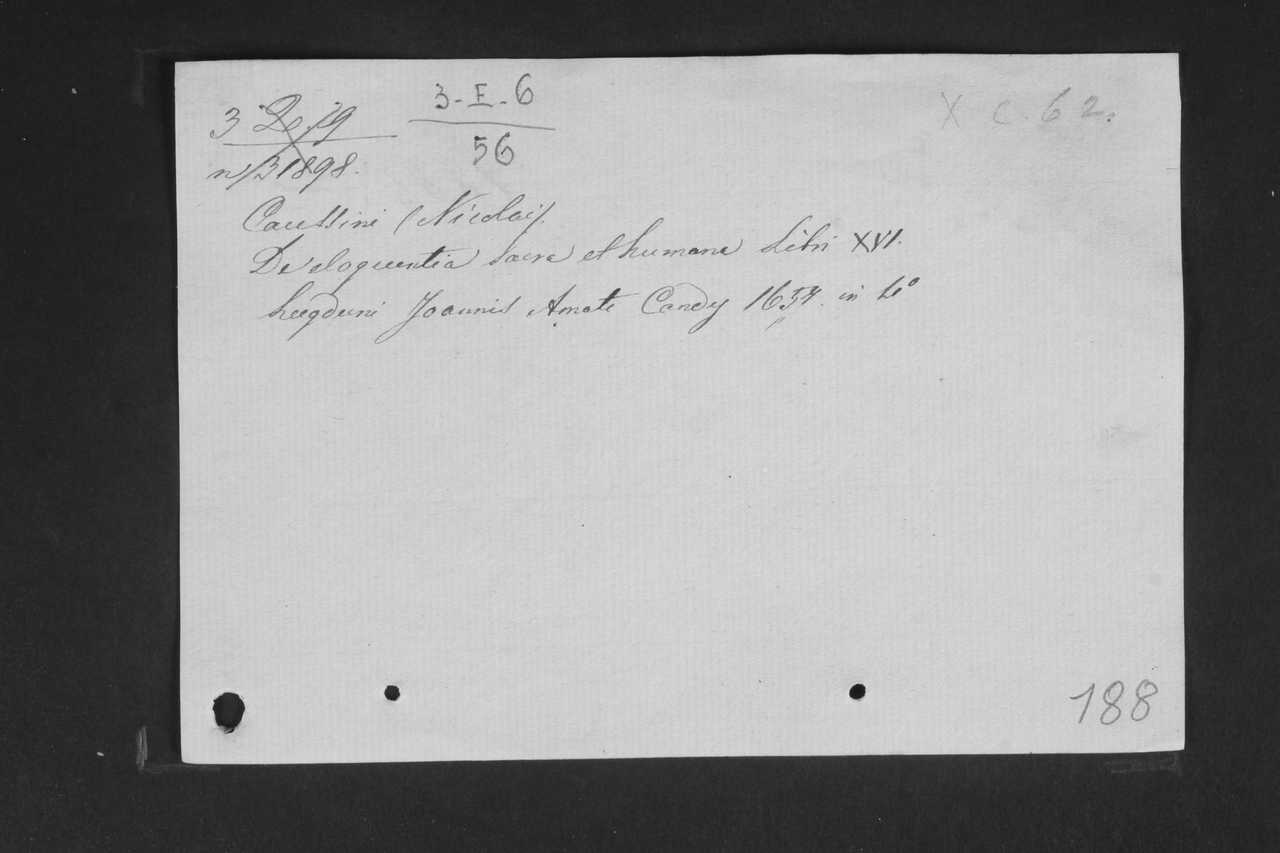 3-E-6
56
X C. 62.
n/31898.
Caussini (Nicolai).
De eloquentia sacra et humana Libri XVI.
Lugduni Joannis Amati Candy 1657. in 4º
188